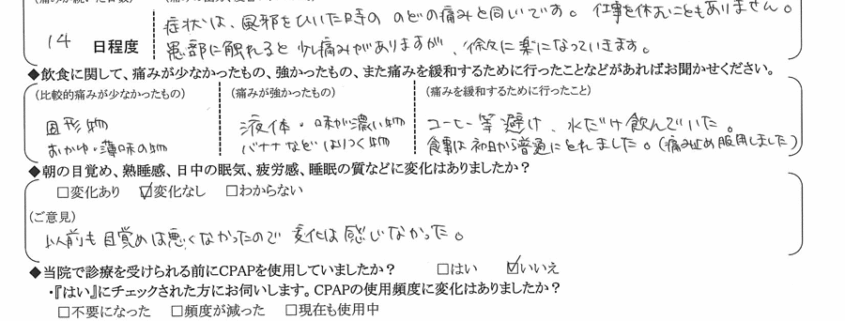 症状は、風邪をひいた時の のどの痛みと同じです。仕事を休むこともありません。
14 日程度
患部に触れると少し痛みがありますが、徐々に楽になっていきます。
◆飲食に関して、痛みが少なかったもの、強かったもの、また痛みを緩和するために行ったことなどがあればお聞かせください。
(比較的痛みが少なかったもの) (痛みが強かったもの) (痛みを緩和するために行ったこと)
固形物 液体・味が濃い物 コーヒー等避け、水だけ飲んでいた。
おかゆ・薄味の物 バナナなどはりつく物 食事は初日から普通にとれました。(痛み止め服用しました)
◆朝の目覚め、熟睡感、日中の眠気、疲労感、睡眠の質などに変化はありましたか?
□変化あり ☑変化なし □わからない
(ご意見)
以前も目覚めは悪くなかったので 変化は感じなかった。
◆当院で診療を受けられる前にCPAPを使用していましたか? □はい ☑いいえ
・『はい』にチェックされた方にお伺いします。CPAPの使用頻度に変化はありましたか?
□不要になった □頻度が減った □現在も使用中